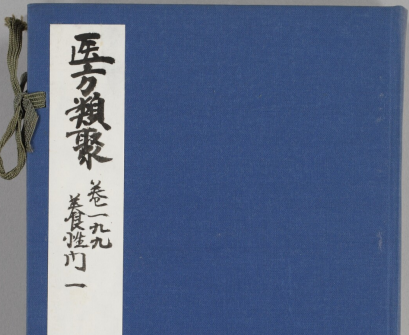 医方類聚
巻一九九
養性門一